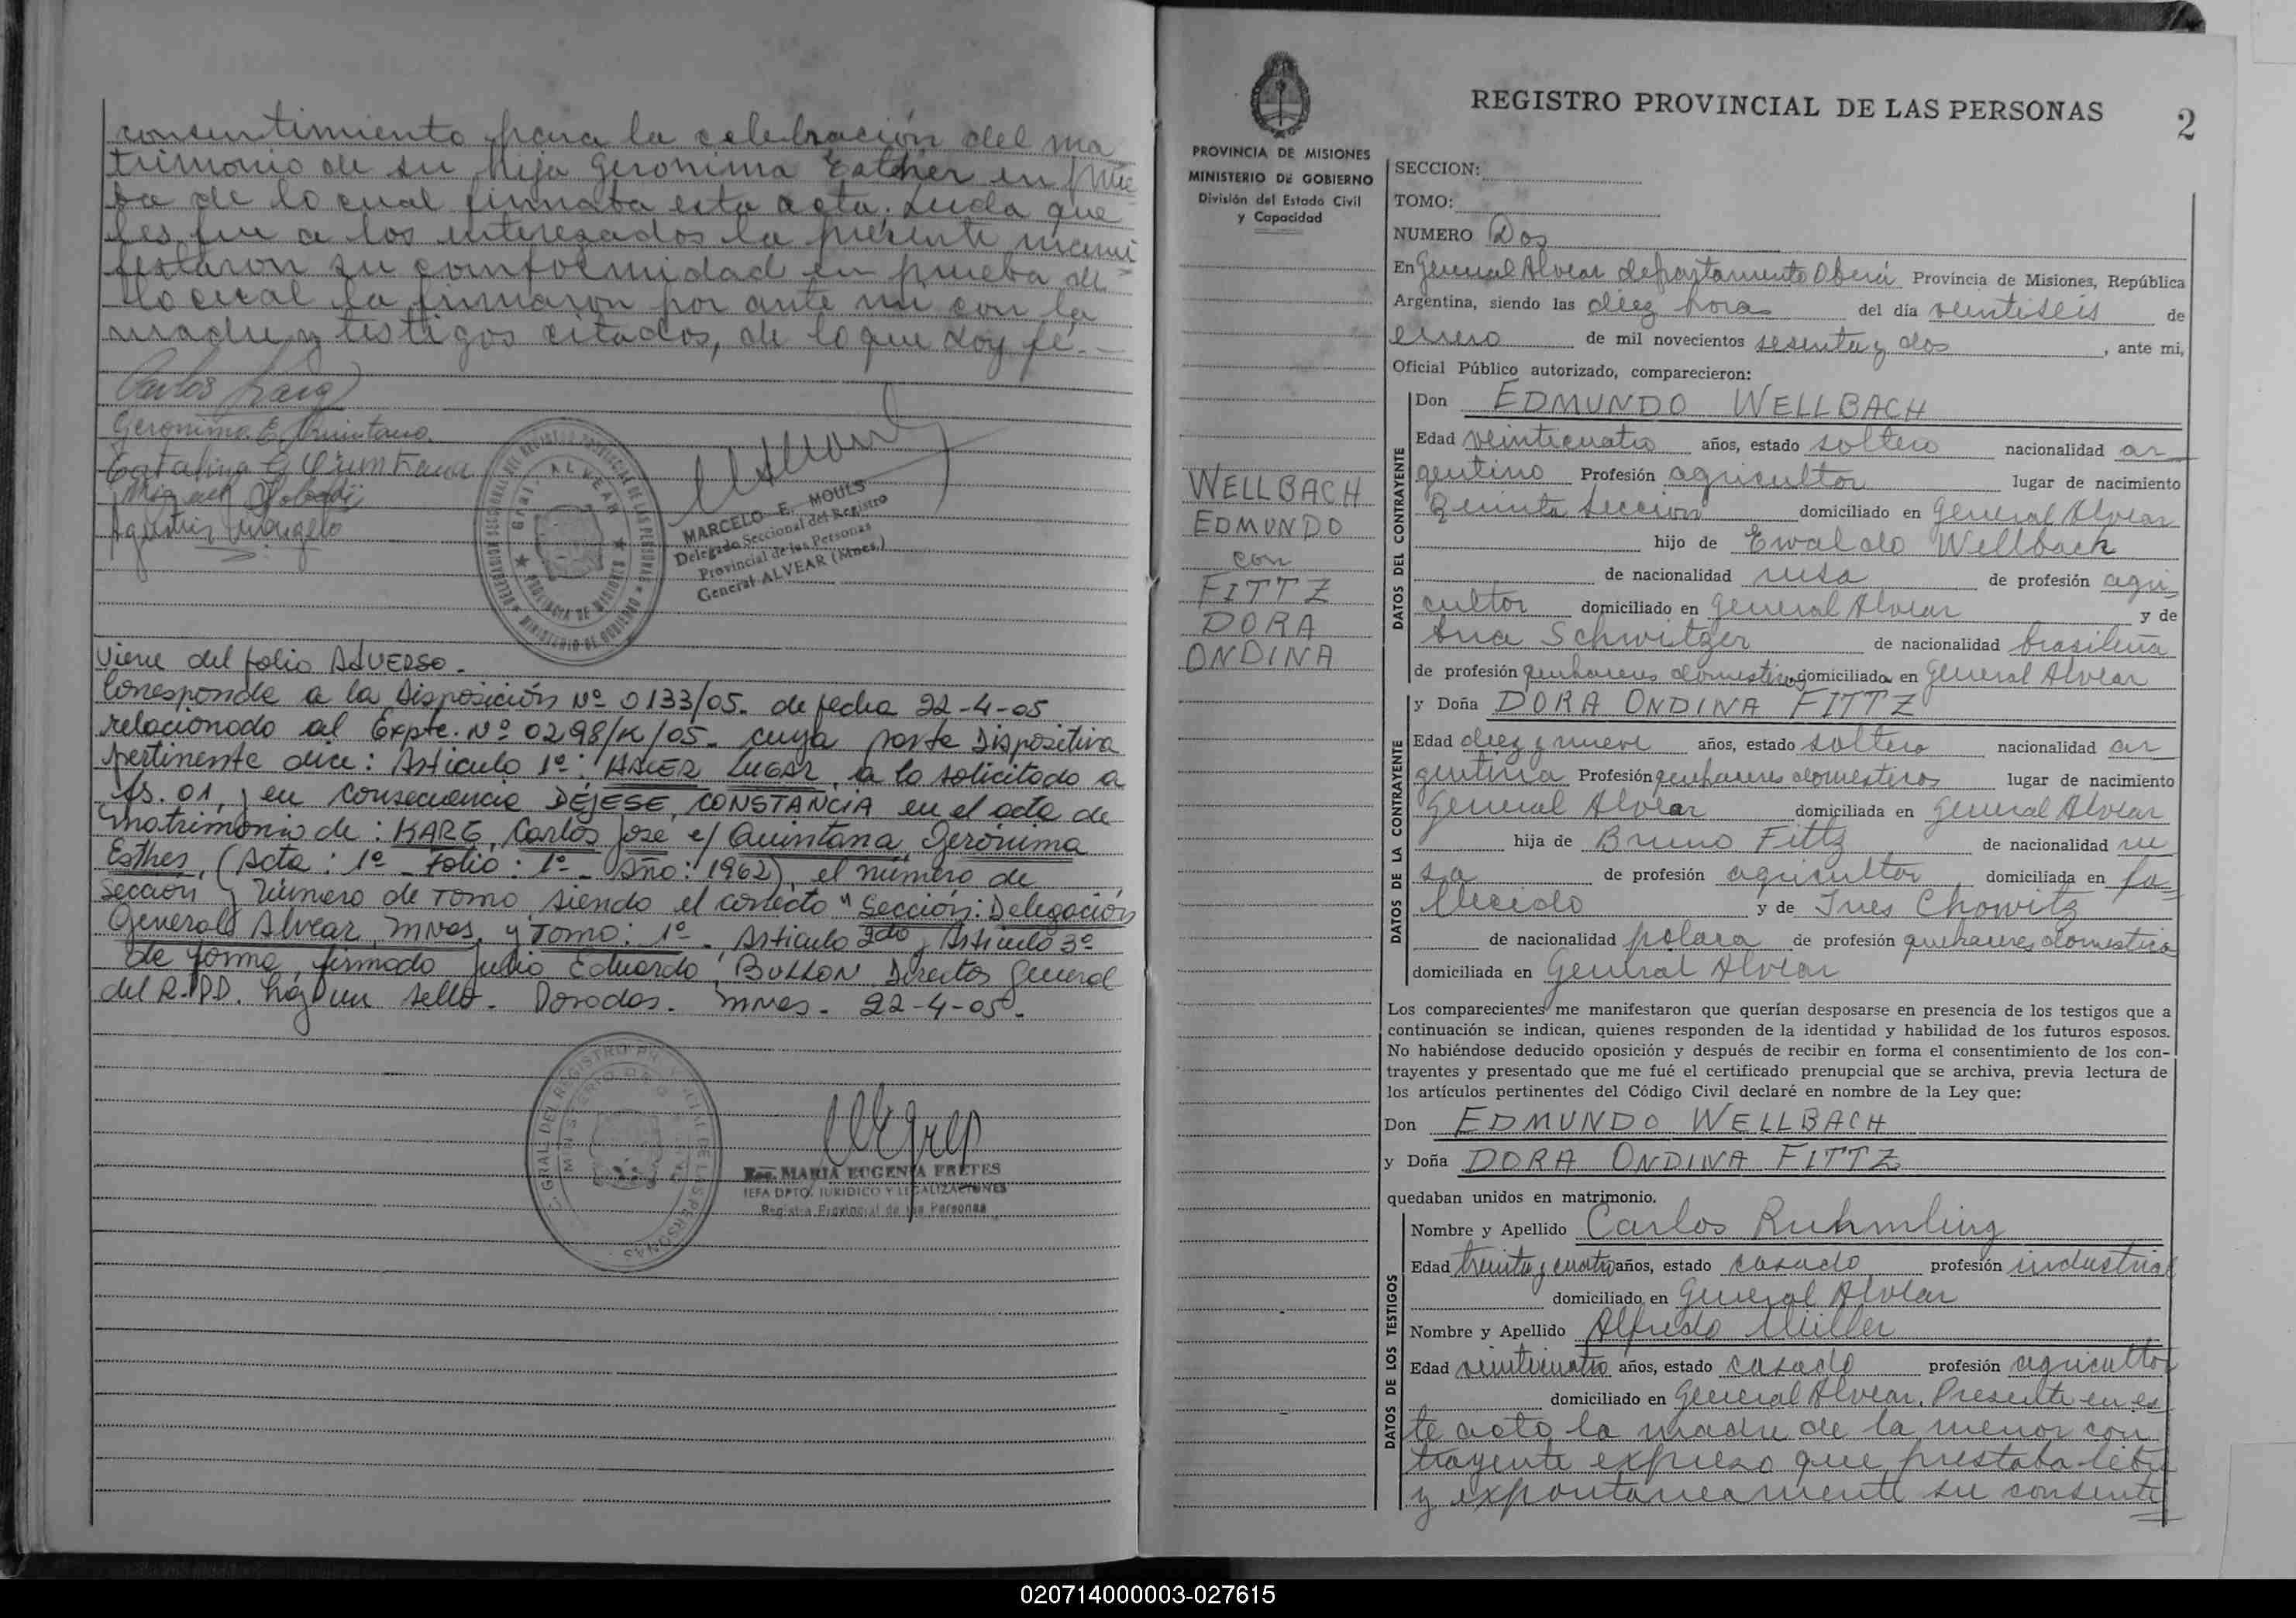 consentimiento para la celebración del ma
trimonio de su hija Geronima Esther en prue
ba de lo cual firmaba esta acta. Leida que
les fue a los interesados la presente mani
festaron su conformidad en prueba de
lo cual la firmaron por ante mi con la
madre y testigos citados, de lo que doy fe.-
Carlos Karg
Geronima E. Quintana
Catalina G Quintana
Miguel
Agustin
MARCELO E. MOULS
Delegado Seccional del Registro
Provincial de las Personas
General ALVEAR (Mnes.)
Viene del folio ADVERSO.
Corresponde a la Disposición Nº 0133/05. de fecha 22-4-05
relacionado al Expte. Nº 0298/K/05. cuya parte Dispositiva
pertinente dice: Artículo 1º: HACER LUGAR, a lo solicitado a
fs. 01, y en consecuencia DÉJESE CONSTANCIA en el acta de
matrimonio de: KARG, Carlos Jose c/ Quintana, Gerónima
Esther, (Acta: 1º - Folio: 1º - Año: 1962), el número de
sección y número de Tomo, siendo el correcto "Sección: Delegación
General Alvear, Mnes, y Tomo: 1º. Artículo 2do y Artículo 3º
de forma, firmado Julio Eduardo BULLON Director General
del R.P.P. hay un sello. Posadas. Mnes. 22-4-05.
MARIA EUGENIA FRETES
JEFA DPTO. JURIDICO Y LEGALIZACIONES
Registro Provincial de las Personas
REGISTRO PROVINCIAL DE LAS PERSONAS
2
PROVINCIA DE MISIONES
MINISTERIO DE GOBIERNO
División del Estado Civil
y Capacidad
WELLBACH
EDMUNDO
con
FITTZ
DORA
ONDINA
SECCION:
TOMO:
NUMERO Dos
En General Alvear departamento Oberá Provincia de Misiones, República
Argentina, siendo las diez horas del día veintiseis de
enero de mil novecientos sesenta y dos, ante mi,
Oficial Público autorizado, comparecieron:
DATOS DEL CONTRAYENTE
Don EDMUNDO WELLBACH
Edad veinticuatro años, estado soltero nacionalidad ar
gentino Profesión agricultor lugar de nacimiento
Quinta Sección domiciliado en General Alvear
hijo de Ewaldo Wellbach
de nacionalidad rusa de profesión agri
cultor domiciliado en General Alvear y de
Ana Schwitzer de nacionalidad brasileña
de profesión quehaceres domesticos domiciliada en General Alvear
DATOS DE LA CONTRAYENTE
y Doña DORA ONDINA FITTZ
Edad diez y nueve años, estado soltera nacionalidad ar
gentina Profesión quehaceres domesticos lugar de nacimiento
General Alvear domiciliada en General Alvear
hija de Bruno Fittz de nacionalidad ru
sa de profesión agricultor domiciliada en fa-
llecido y de Ines Chowitz
de nacionalidad polaca de profesión quehaceres domestico
domiciliada en General Alvear
Los comparecientes me manifestaron que querían desposarse en presencia de los testigos que a
continuación se indican, quienes responden de la identidad y habilidad de los futuros esposos.
No habiéndose deducido oposición y después de recibir en forma el consentimiento de los con-
trayentes y presentado que me fué el certificado prenupcial que se archiva, previa lectura de
los artículos pertinentes del Código Civil declaré en nombre de la Ley que:
Don EDMUNDO WELLBACH
y Doña DORA ONDINA FITTZ
quedaban unidos en matrimonio.
DATOS DE LOS TESTIGOS
Nombre y Apellido Carlos Ruhmling
Edad treinta y cuatro años, estado casado profesión industrial
domiciliado en General Alvear
Nombre y Apellido Alfredo Müller
Edad veinticuatro años, estado casado profesión agricultor
domiciliado en General Alvear. Presente en es
te acto la madre de la menor con
trayente expreso que prestaba libre
y expontaneamente su consenti
020714000003-027615